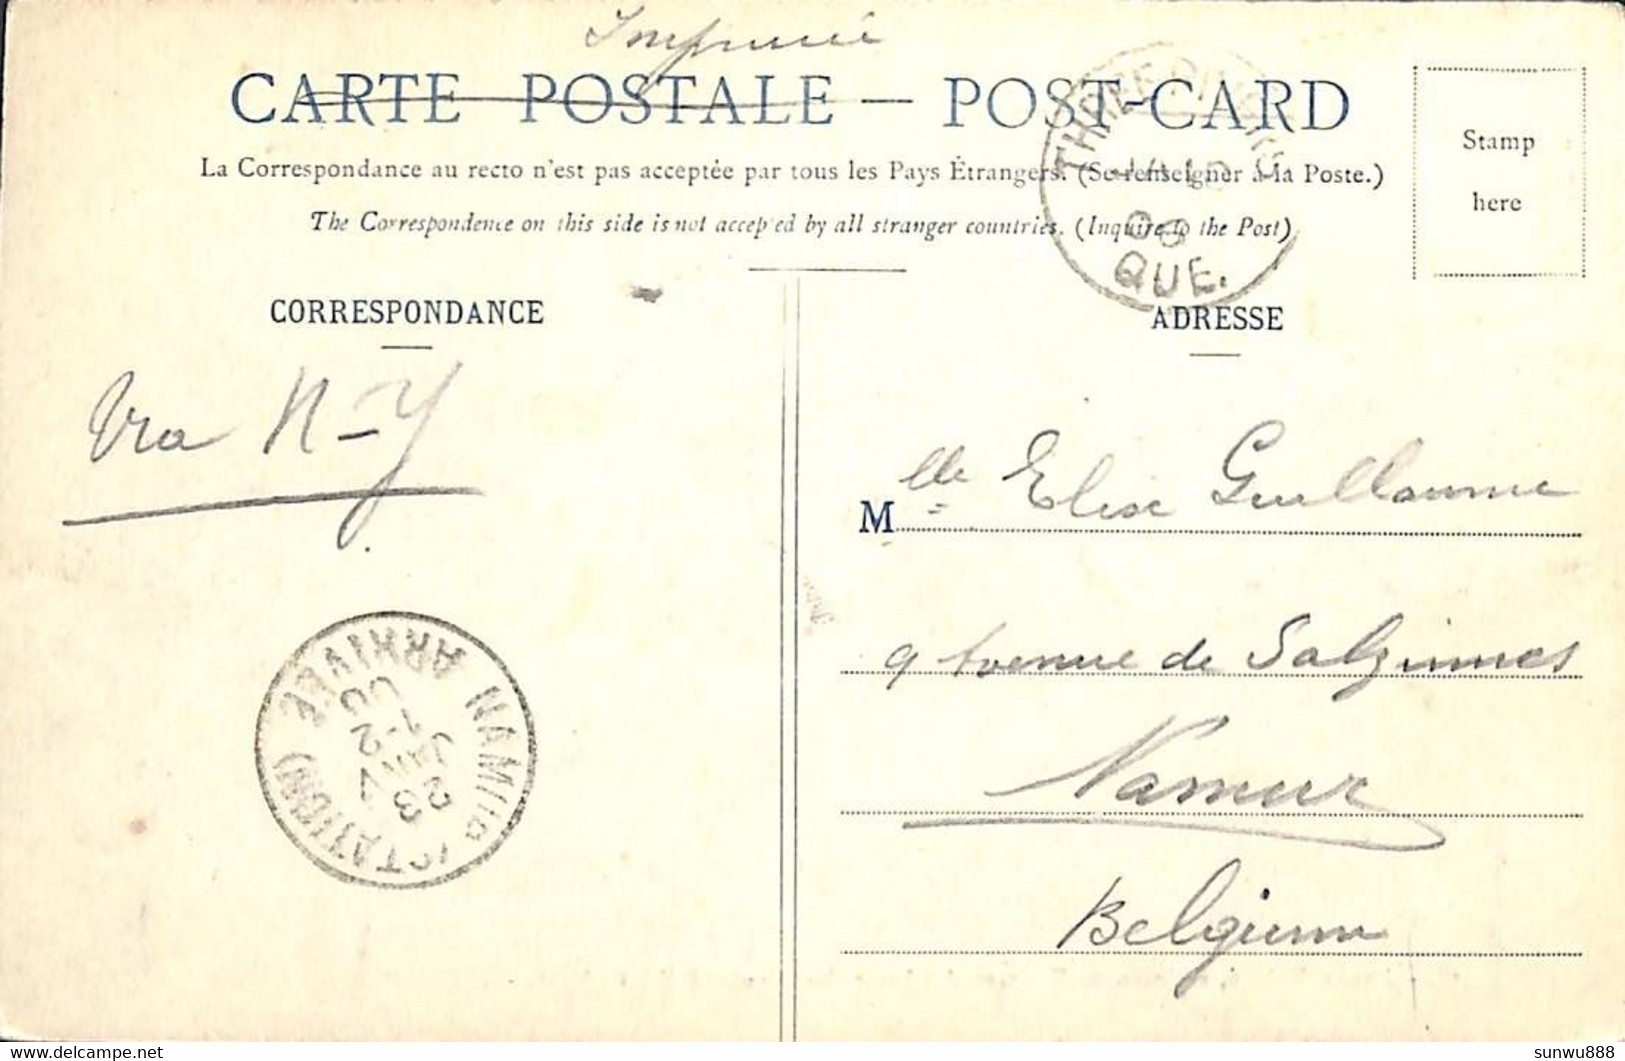 Imprimé
CARTE POSTALE — POST-CARD
La Correspondance au recto n'est pas acceptée par tous les Pays Étrangers. (Se renseigner à la Poste.)
The Correspondence on this side is not accep'ed by all stranger countries. (Inquire to the Post)
Stamp
here
THREE RIVERS
08
QUE.
CORRESPONDANCE
Via N-Y
NAMUR (STATION)
ARRIVÉE
ADRESSE
Mlle Elise Guillaume
9 Avenue de Salzinnes
Namur
Belgium
sunwu888